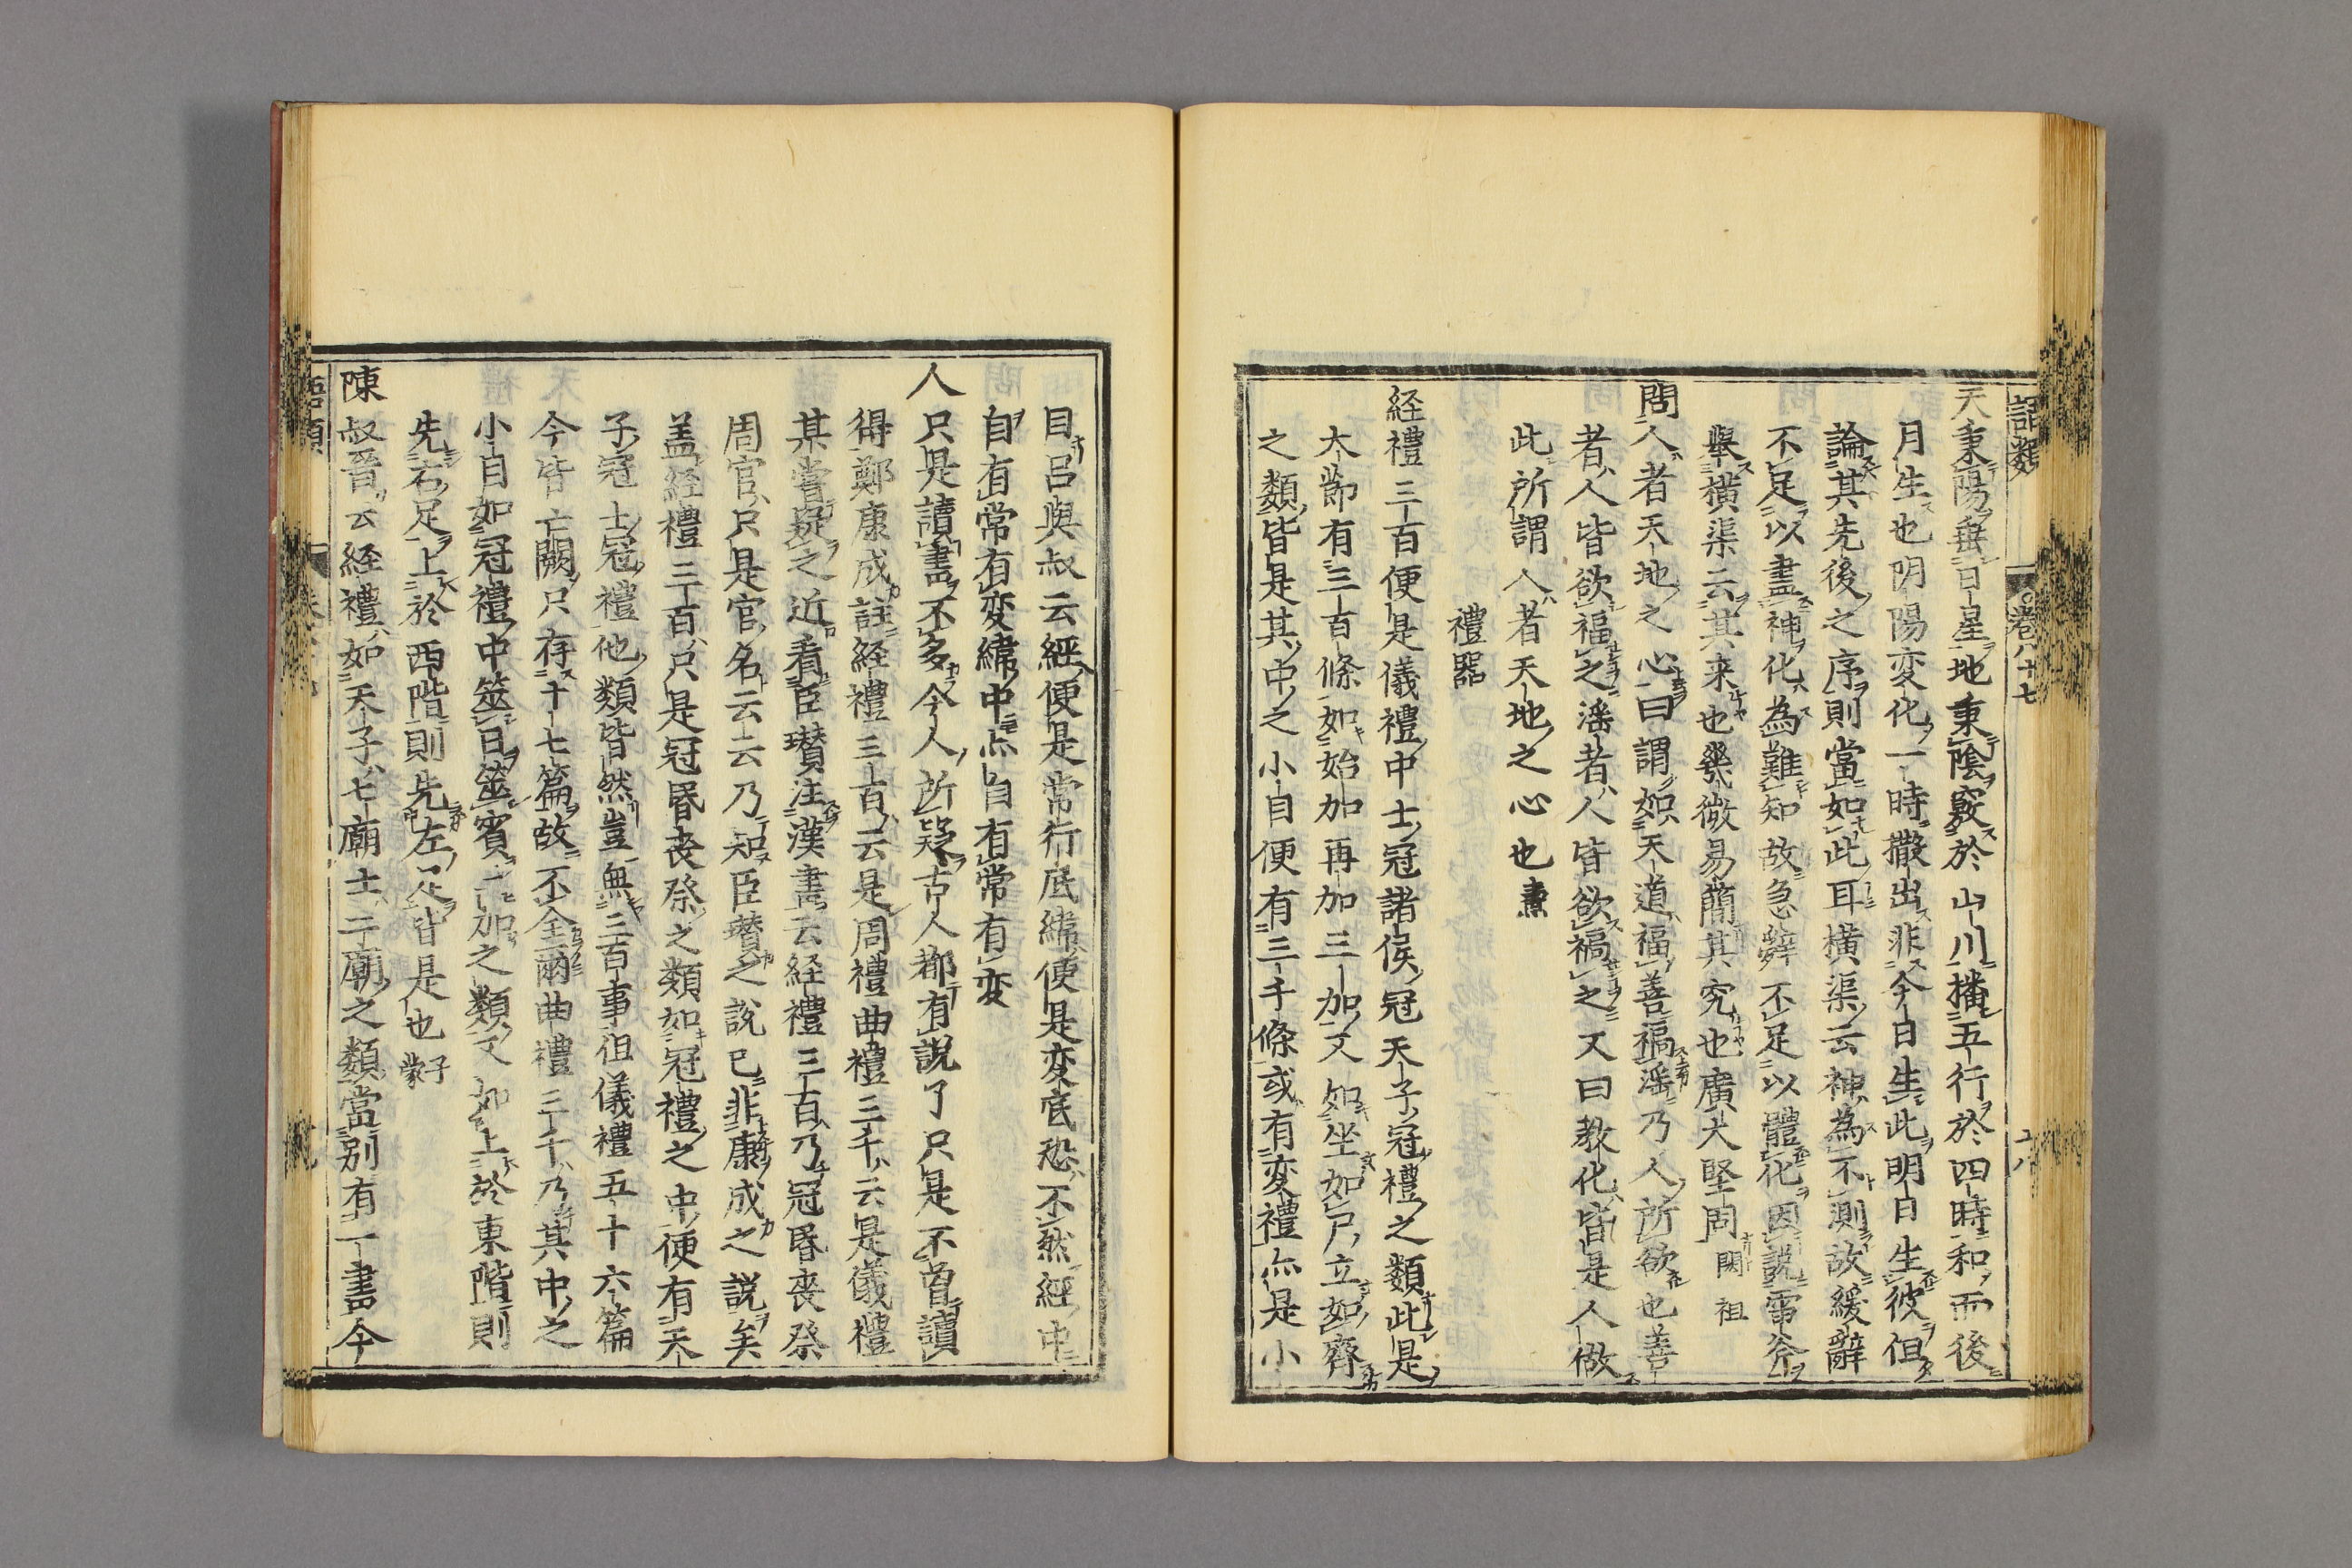 語類 卷八十七
天秉陽垂日星地秉陰竅於山川播五行於四時和而後
月生也明陽変化一時撒出非今日生此明日生彼但
論其先後之序則當如此耳横渠云神為不測故緩辭
不足以盡神化為難知故急辭不足以體化因説雷斧
舉横渠云其来也幾微易簡其究也廣大堅固 閎祖
問人者天地之心曰謂如天道福善禍滛乃人所欲也善
者人皆欲福之滛者人皆欲禍之又曰教化皆是人做
此所謂人者天地之心也 燾
禮器
経禮三百便是儀禮中士冠諸侯冠天子冠禮之類此是
大莭有三百條如始加再加三加又如坐如尸立如齊
之類皆是其中之小目便有三千條或有変禮亦是小
目呂與叔云經便是常行底緯便是変底恐不然經中
自有常有変緯中亦自有常有変
人只是讀書不多今人所疑古人都有説了只是不曾讀
得鄭康成註経禮三百云是周禮曲禮三千云是儀禮
某嘗疑之近看臣瓚注漢書云経禮三百乃冠昬丧祭
周官只是官名云云乃知臣瓚之説已非康成之説矣
盖経禮三百只是冠昬丧祭之類如冠禮之中便有天
子冠士冠禮他類皆然豈無三百事但儀禮五十六篇
今皆亡闕只存十七篇故不全爾曲禮三千乃其中之
小目如冠禮中筮日筮賓三加之類又如上於東階則
先右足上於西階則先左足皆是也 子蒙
陳叔晉云経禮如天子七廟士二廟之類當别有一書今
語類